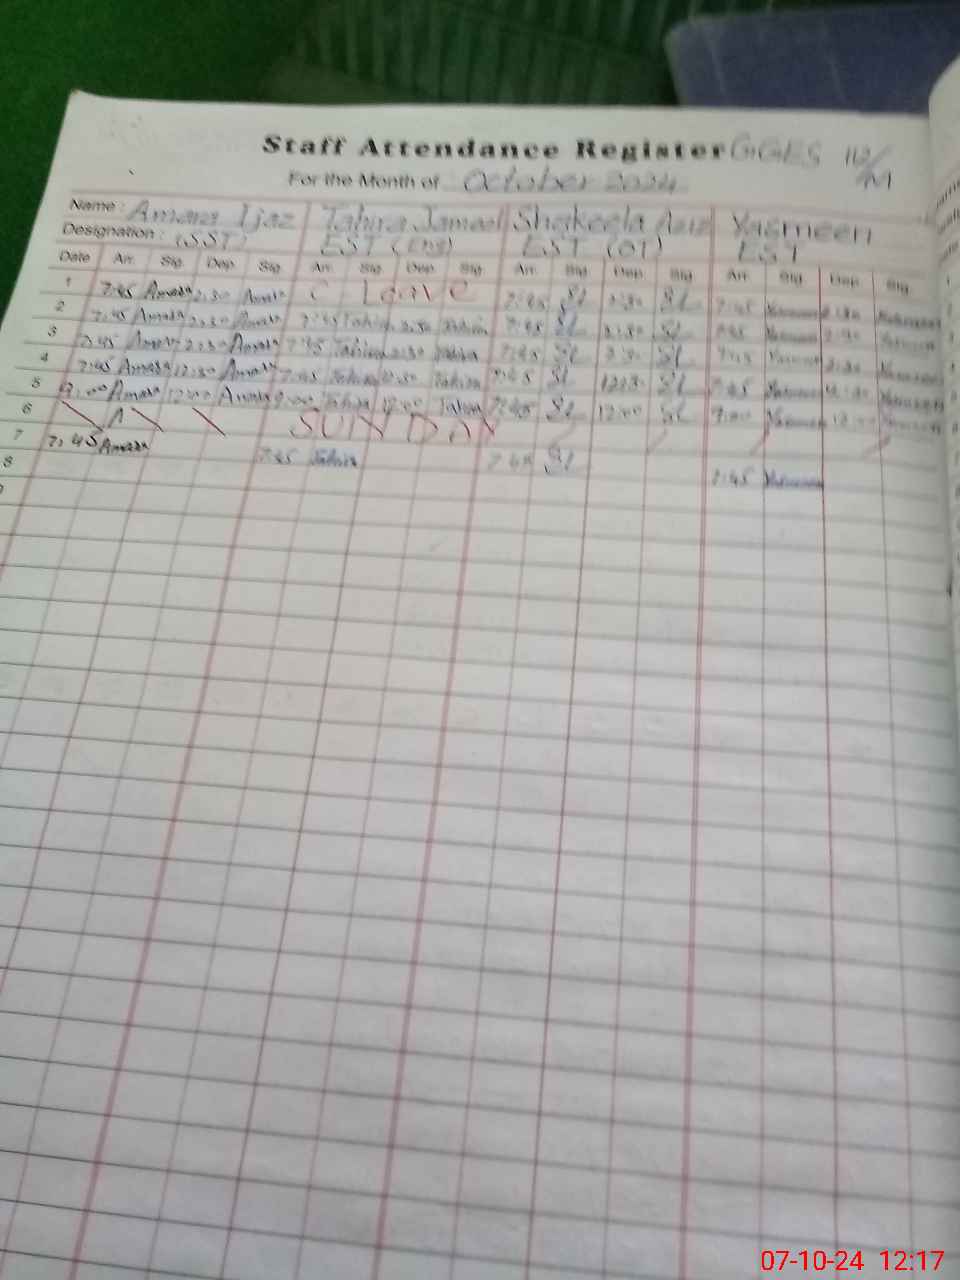 Staff Attendance Register GGES 112/M
For the Month of October 2024
Name: Amara Ijaz Tahira Jameel Shakeela Aziz Yasmeen
Designation: (SST) EST (Eng) EST (OT) EST
Date Arr. Sig. Dep. Sig. Arr. Sig. Dep. Sig. Arr. Sig. Dep. Sig. Arr. Sig. Dep. Sig.
1 7:45 Amara 2:30 Amara C. Leave 7:45 2:30 7:45 Yasmeen 2:30 Yasmeen
2 7:45 Amara 2:30 Amara 7:45 Tahira 2:30 Tahira 7:45 2:30 7:45 Yasmeen 2:30 Yasmeen
3 7:45 Amara 2:30 Amara 7:45 Tahira 2:30 Tahira 7:45 2:30 7:45 Yasmeen 2:30 Yasmeen
4 7:45 Amara 12:30 Amara 7:45 Tahira 12:30 Tahira 7:45 12:30 7:45 Yasmeen 12:30 Yasmeen
5 9:00 Amara 12:00 Amara 9:00 Tahira 12:00 Tahira 7:45 12:00 9:00 Yasmeen 12:00 Yasmeen
6 SUNDAY
7 7:45 Amara 7:45 Tahira 7:45 7:45 Yasmeen
8
07-10-24 12:17